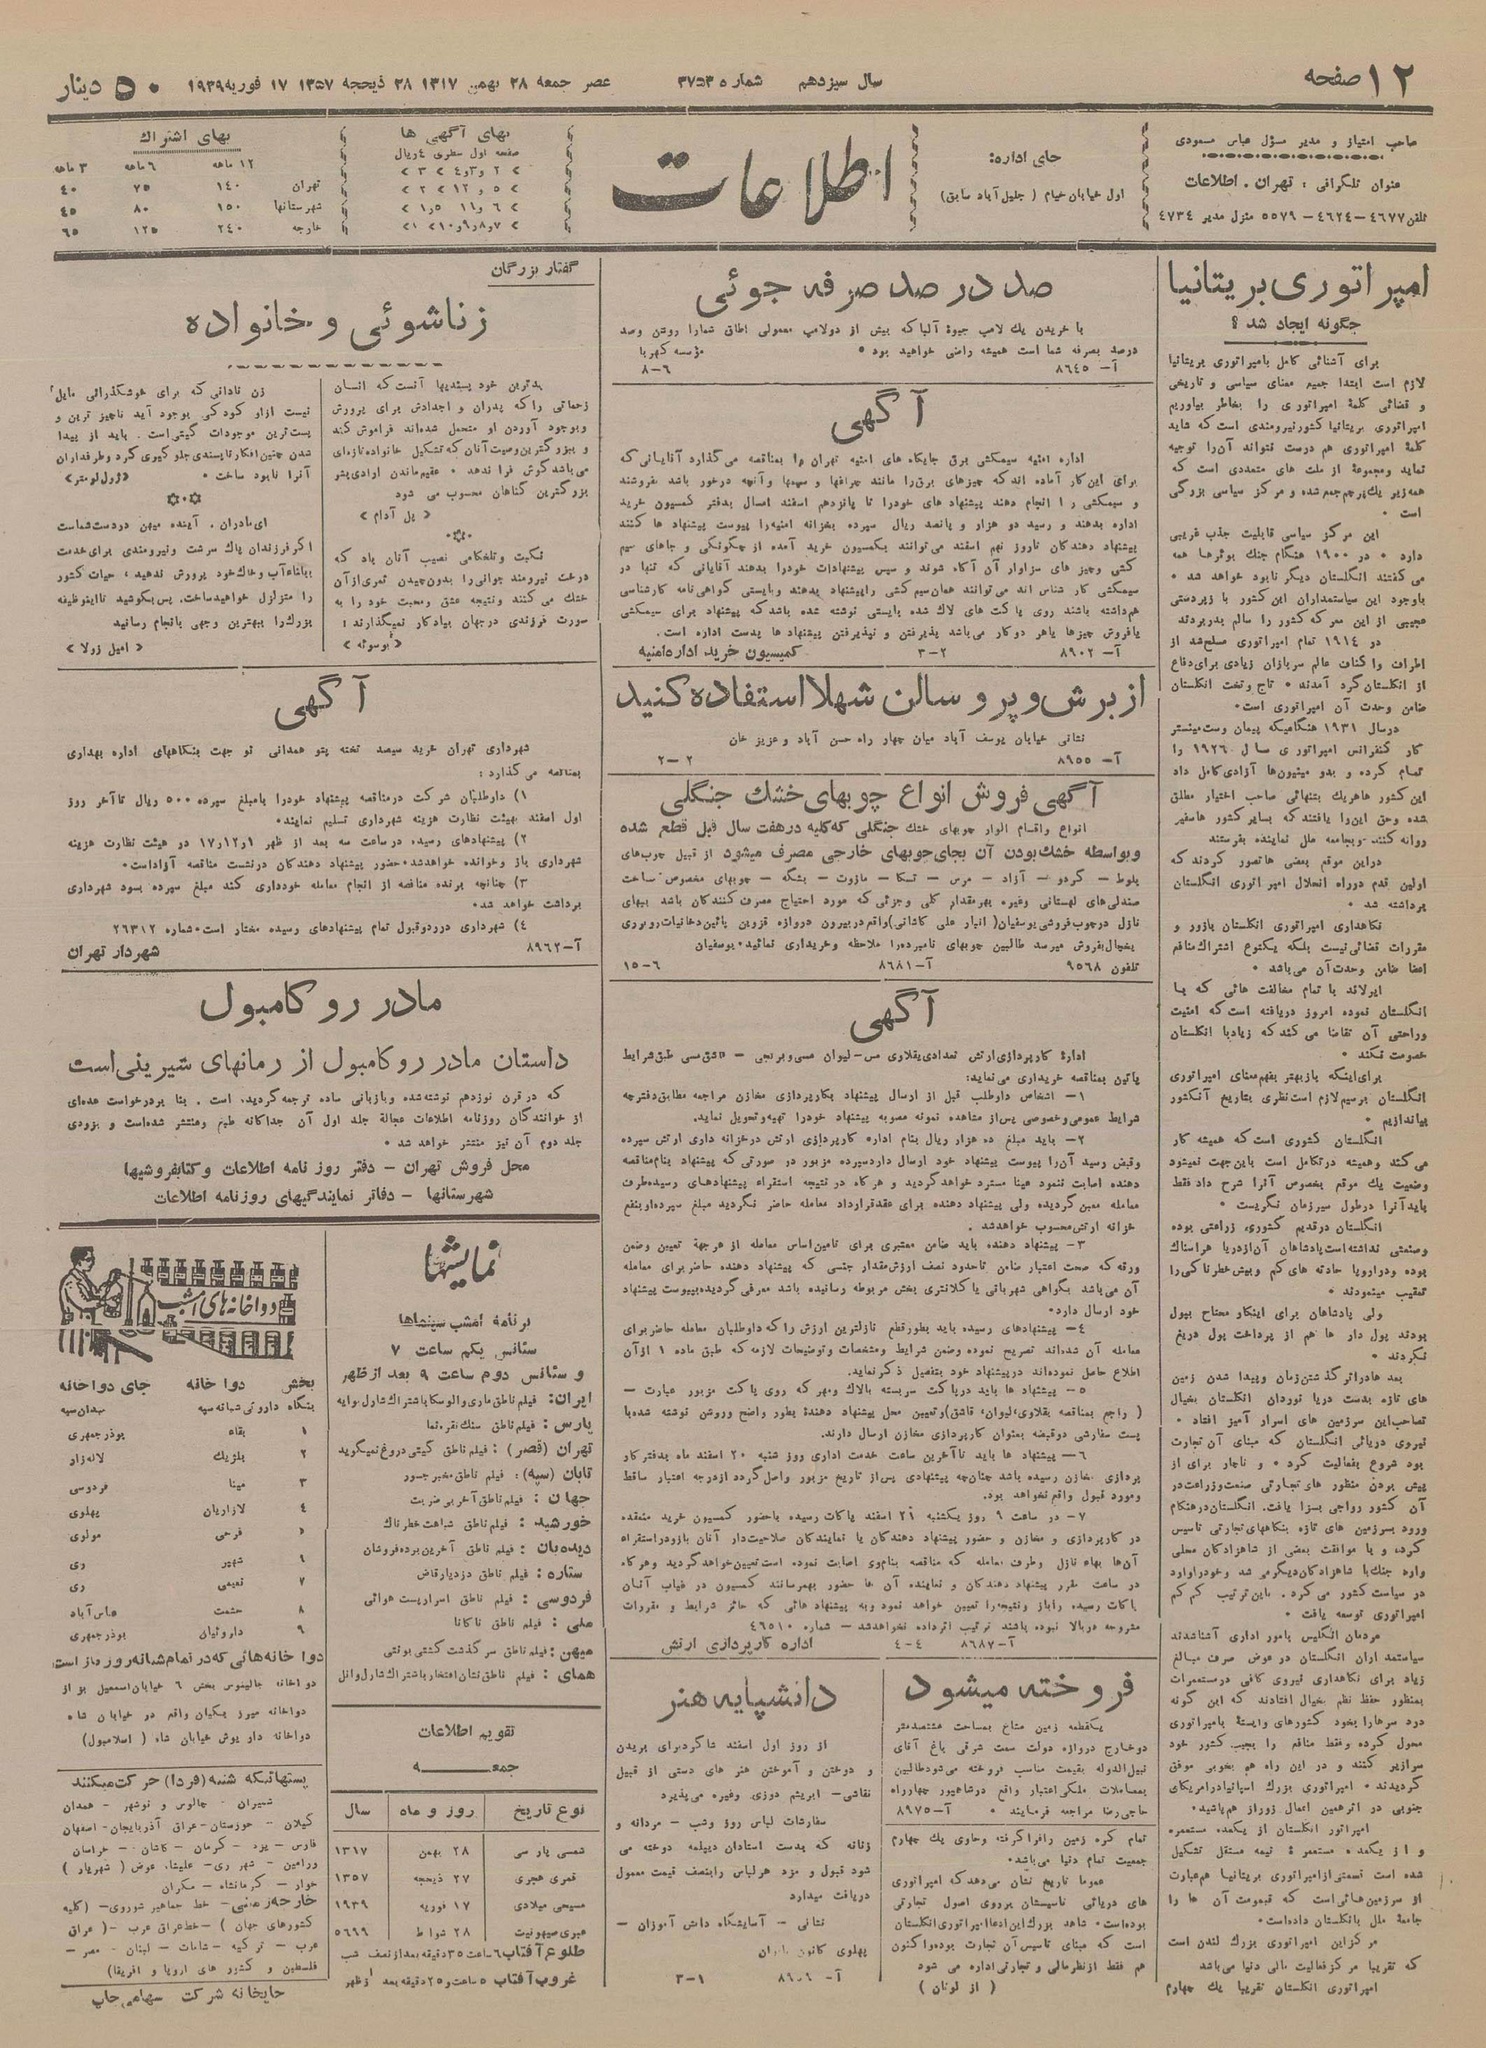 ۱۲ صفحه
سال سیزدهم
شماره ۳۷۵۳
عصر جمعه ۲۸ بهمن ۱۳۱۷ ۲۸ ذیحجه ۱۳۵۷ ۱۷ فوریه ۱۹۳۹
۵۰ دینار
صاحب امتیاز و مدیر مسؤل عباس مسعودی
عنوان تلگرافی : تهران . اطلاعات
تلفن ۴۶۷۷ – ۴۶۲۴ – ۵۵۷۹ منزل مدیر ۴۷۳۴
جای اداره:
اول خیابان خیام ( جلیل آباد سابق )
اطلاعات
بهای آگهی ها
صفحه اول سطری ۴ ریال
بهای اشتراک
۱۲ ماهه ۶ ماهه ۳ ماهه
تهران ۱۴۰ ۷۵ ۴۰
شهرستانها ۱۵۰ ۸۰ ۴۵
خارجه ۲۴۰ ۱۲۵ ۶۵
امپراتوری بریتانیا
چگونه ایجاد شد ؟
برای آشنائی کامل بامپراتوری بریتانیا
لازم است ابتدا جمیع معنای سیاسی و تاریخی
و قضائی کلمه امپراتوری را بخاطر بیاوریم
امپراتوری بریتانیا کشور نیرومندی است که شاید
کلمه امپراتوری هم درست نتواند آن را توجیه
نماید ومجموعهٔ از ملت های متعددی است که
همه زیر یک پرچم جمع شده و مرکز سیاسی بزرگی
است .
این مرکز سیاسی قابلیت جذب غریبی
دارد . در ۱۹۰۰ هنگام جنگ بوئرها همه
می گفتند انگلستان دیگر نابود خواهد شد .
باوجود این سیاستمداران این کشور با زبردستی
عجیبی از این معرکه کشور را سالم بدر بردند
در ۱۹۱۴ تمام امپراتوری مسلح شد از
اطراف و اکناف عالم سربازان زیادی برای دفاع
از انگلستان گرد آمدند . تاج و تخت انگلستان
ضامن وحدت آن امپراتوری است.
در سال ۱۹۳۱ هنگامیکه پیمان وست مینستر
کار کنفرانس امپراتوری سال ۱۹۲۶ را
تمام کرده و بدو مینیون ها آزادی کامل داد
این کشور ها هر یک بتنهائی صاحب اختیار مطلق
شده وحق این را یافتند که بسایر کشور ها سفیر
روانه کنند. وبجامعه ملل نماینده بفرستند
دراین موقع بعضی ها تصور کردند که
اولین قدم در راه انحلال امپراتوری انگلستان
برداشته شد .
نگاهداری امپراتوری انگلستان بازور و
مقررات قضائی نیست بلکه یکنوع اشتراک منافع
اعضا ضامن وحدت آن می باشد .
ایرلاند با تمام مخالفت هائی که با
انگلستان نموده امروز دریافته است که امنیت
وراحتی آن تقاضا می کند که زیاد با انگلستان
خصومت نکند .
برای اینکه باز بهتر بفهم معنای امپراتوری
انگلستان برسیم لازم است نظری بتاریخ آنکشور
بیاندازیم .
انگلستان کشوری است که همیشه کار
می کند وهمیشه در تکامل است باین جهت نمیشود
وضعیت یک موقع بخصوص آنرا شرح داد فقط
باید آنرا درطول سیر زمان نگریست .
انگلستان در قدیم کشوری زراعتی بوده
وصنعتی نداشته است پادشاهان آن از دریا هراسناک
بوده و در اروپا حادثه های کم و بیش خطرناکی را
تعقیب مینمودند .
ولی پادشاهان برای اینکار محتاج بپول
بودند پول دار ها هم از پرداخت پول دریغ
نکردند .
بعدها در اثر گذشتن زمان و پیدا شدن زمین
های تازه بدست دریا نوردان انگلستان بخیال
تصاحب این سرزمین های اسرار آمیز افتاد .
نیروی دریائی انگلستان که مبنای آن تجارت
بود شروع بفعالیت کرد . و ناچار برای از
پیش بودن منظور های تجارتی صنعت و زراعت در
آن کشور رواجی بسزا یافت. انگلستان در هنگام
ورود بسرزمین های تازه بنگاههای تجارتی تاسیس
کرده و با موافقت بعضی از شاهزادگان محلی
وارد جنگ با شاهزادگان دیگر می شد وخود را وارد
در سیاست کشور می کرد . باین ترتیب کم کم
امپراتوری توسعه یافت .
مردمان انگلیس بامور اداری آشنا شدند
سیاستمداران انگلستان در عوض صرف مبالغ
زیاد برای نگاهداری نیروی کافی درمستعمرات
بمنظور حفظ نظم بخیال افتادند که این گونه
درد سرها را بخود کشورهای وابستهٔ بامپراتوری
محول کرده وفقط منافع را بجیب کشور خود
سرازیر کنند و در این راه هم بخوبی موفق
گردیدند . امپراتوری بزرگ اسپانیا در امریکای
جنوبی در اثر همین اعمال زور از هم پاشید .
امپراتور انگلستان از یکعده مستعمره
و از یکعده مستعمره : نیمه مستقل تشکیل
شده است قسمتی از امپراتوری بریتانیا هم عبارت
از سرزمین هائی است که قیمومت آن ها را
جامعهٔ ملل بانگلستان داده است .
مرکز این امپراتوری بزرگ لندن است
که تقریبا مرکز فعالیت مالی دنیا می باشد
امپراتوری انگلستان تقریبا یک چهارم
صد در صد صرفه جوئی
با خریدن یک لامپ جیوهٔ آلبا که بیش از دولامپ معمولی اطاق شمارا روشن وصد
درصد بصرفه شما است همیشه راضی خواهید بود .
مؤسسه کهربا
آ– ۸۶۴۵ ۸–۶
آگهی
اداره امنیه سیمکشی برق جایگاه های امنیه تهران را بمناقصه می گذارد آقایانی که
برای این کار آماده اند که چیزهای برق را مانند چراغها و سیمها و آنچه درخور باشد بفروشند
و سیمکشی را انجام دهند پیشنهاد های خودرا تا پانزدهم اسفند امسال بدفتر کمسیون خرید
اداره بدهند و رسید دو هزار و پانصد ریال سپرده بخزانه امنیه را پیوست پیشنهاد ها کنند
پیشنهاد دهندگان تا روز نهم اسفند می توانند بکمسیون خرید آمده از چگونگی و جاهای سیم
کشی و چیز های سزاوار آن آگاه شوند و سپس پیشنهادات خودرا بدهند آقایانی که تنها در
سیمکشی کار شناس اند می توانند همان سیم کشی را پیشنهاد بدهند وبایستی گواهی نامه کارشناسی
هم داشته باشند روی پاکت های لاک شده بایستی نوشته شده باشد که پیشنهاد برای سیمکشی
یا فروش چیزها یا هر دو کار می باشد پذیرفتن و نپذیرفتن پیشنهاد ها بدست اداره است.
آ– ۸۹۰۲ ۳–۲ کمیسیون خرید اداره امنیه
از برش و پرو سالن شهلا استفاده کنید
نشانی خیابان یوسف آباد میان چهار راه حسن آباد و عزیز خان
آ– ۸۹۵۵ ۲–۲
آگهی فروش انواع چوبهای خشک جنگلی
انواع واقسام الوار چوبهای خشک جنگلی که کلیه در هفت سال قبل قطع شده
وبواسطه خشک بودن آن بجای چوبهای خارجی مصرف میشود از قبیل چوب های
بلوط – گردو – آزاد – مرس – تسکا – مازوت – بشگه – چوبهای مخصوص ساخت
صندلی های لهستانی وغیره بهر مقدار کلی وجزئی که مورد احتیاج مصرف کنندگان باشد ببهای
نازل در چوب فروشی یوسفیان( انبار علی کاشانی)واقع در بیرون دروازه قزوین پائین دخانیات روبروی
یخچال بفروش میرسد طالبین چوبهای نامبرده را ملاحظه وخریداری نمایند. یوسفیان
تلفون ۹۵۶۸ آ–۸۶۸۱ ۱۵–۶
آگهی
ادارهٔ کارپردازی ارتش تعدادی بقلاوی مس–لیوان مسی و برنجی – قاشق مسی طبق شرایط
پائین بمناقصه خریداری می نماید:
۱– اشخاص داوطلب قبل از ارسال پیشنهاد بکارپردازی مخازن مراجعه مطابق دفترچه
شرایط عمومی وخصوصی پس از مشاهده نمونه مصوبه پیشنهاد خودرا تهیه و تحویل نماید.
۲– باید مبلغ ده هزار ریال بنام اداره کارپردازی ارتش درخزانه داری ارتش سپرده
وقبض رسید آن را پیوست پیشنهاد خود ارسال دارد سپرده مزبور در صورتی که پیشنهاد بنام مناقصه
دهنده اصابت ننمود عینا مسترد خواهد گردید و هر گاه در نتیجه استقراء پیشنهاد های رسیده طرف
معامله معین گردیده ولی پیشنهاد دهنده برای عقد قرارداد معامله حاضر نگردید مبلغ سپرده او بنفع
خزانه ارتش محسوب خواهد شد .
۳– پیشنهاد دهنده باید ضامن معتبری برای تامین اساس معامله از هر جهة تعیین وضمن
ورقه که صحت اعتبار ضامن تا حدود نصف ارزش مقدار جنسی که پیشنهاد دهنده حاضر برای معامله
آن می باشد بگواهی شهربانی یا کلانتری بخش مربوطه رسانیده باشد معرفی گردیده بپیوست پیشنهاد
خود ارسال دارد.
۴– پیشنهادهای رسیده باید بطور قطع نازلترین ارزش را که داوطلبان معامله حاضر برای
معامله آن شده اند تصریح نموده وضمن شرایط ومشخصات وتوضیحات لازمه که طبق ماده ۱ از آن
اطلاع حاصل نموده اند درپیشنهاد خود بتفصیل ذکر نماید.
۵– پیشنهاد ها باید در پاکت سربسته بالاک ومهر که روی پاکت مزبور عبارت –
( راجع بمناقصه بقلاوی،لیوان، قاشق)وتعیین محل پیشنهاد دهندهٔ بطور واضح وروشن نوشته شده با
پست سفارشی دوقبضه بعنوان کارپردازی مخازن ارسال دارند.
۶– پیشنهاد ها باید تا آخرین ساعت خدمت اداری روز شنبه ۲۰ اسفند ماه بدفتر کار
پردازی مخازن رسیده باشد چنانچه پیشنهادی پس از تاریخ مزبور واصل گردد از درجه اعتبار ساقط
ومورد قبول واقع نخواهد بود.
۷– در ساعت ۹ روز یکشنبه ۲۱ اسفند پاکات رسیده باحضور کمسیون خرید منعقده
در کارپردازی و مخازن و حضور پیشنهاد دهندگان یا نمایندگان صلاحیت دار آنان باز و در استقراء
آن ها بهاء نازل وطرف معامله که مناقصه بنام وی اصابت نموده است تعیین خواهد گردید و هر گاه
در ساعت مقرر پیشنهاد دهندگان و نماینده آن ها حضور بهم رسانند کمسیون در غیاب آنان
پاکات رسیده را باز ونتیجه را تعیین خواهد نمود و به پیشنهاد هائی که حائز شرایط و مقررات
مشروحه در بالا نبوده باشند ترتیب اثر داده نخواهد شد – شماره ۴۶۵۱۰
آ–۸۶۸۷ ۴–۴ اداره کارپردازی ارتش
فروخته میشود
یکقطعه زمین مشاع بمساحت هشتصد متر
دو خارج دروازه دولت سمت شرقی باغ آقای
نبیل الدوله بقیمت مناسب فروخته می شود طالبین
بمعاملات ملکی اعتبار واقع در شاهپور چهار راه
حاجی رضا مراجعه فرمایند . آ–۸۹۷۵
تمام کره زمین را فرا گرفته وحاوی یک چهارم
جمعیت تمام دنیا می باشد .
عموما تاریخ نشان می دهد که امپراتوری
های دریائی تاسیستان برروی اصول تجارتی
بوده است . شاهد بزرگ این ادعا امپراتوری انگلستان
است که مبنای تاسیس آن تجارت بوده و اکنون
هم فقط از نظر مالی و تجارتی اداره می شود
( از لوتان )
دانشپایه هنر
از روز اول اسفند شاگرد برای بریدن
و دوختن و آموختن هنر های دستی از قبیل
نقاشی– ابریشم دوزی وغیره می پذیرد
سفارشات لباس روز وشب – مردانه و
زنانه که بدست استادان دیپلمه دوخته می
شود قبول و مزد هر لباس را بنصف قیمت معمول
دریافت میدارد
نشانی – آسایشگاه دانش آموزان –
پهلوی کانون بانوان
۳–۱
گفتار بزرگان
زناشوئی و خانواده
بدترین خود پسندیها آنست که انسان
زحماتی را که پدران و اجدادش برای پرورش
وبوجود آوردن او متحمل شده اند فراموش کند
و ببزرگترین وصیت آنان که تشکیل خانواده تازه ای
می باشد گوش فرا ندهد . عقیم ماندن ارادی بشر
بزرگترین گناهان محسوب می شود
« پل آدام »
نکبت و تلخکامی نصیب آنان باد که
درخت نیرومند جوانی را بدون چیدن ثمری از آن
خشک می کنند ونتیجه عشق ومحبت خود را به
صورت فرزندی درجهان بیادگار نمیگذارند :
« بوسوئه »
زن نادانی که برای خوشگذرانی مایل
نیست از او کودکی بوجود آید ناچیز ترین و
پست ترین موجودات گیتی است . باید از پیدا
شدن چنین افکار ناپسندی جلو گیری کرد وطرفداران
آنرا نابود ساخت .
« ژول لومتر »
ای مادران . آینده میهن در دست شماست
اگر فرزندان پاک سرشت ونیرومندی برای خدمت
بپاشاه آب وخاک خود پرورش ندهید ، حیات کشور
را متزلزل خواهید ساخت. پس بکوشید تا این وظیفه
بزرگ را ببهترین وجهی بانجام رسانید
« امیل زولا »
آگهی
شهرداری تهران خرید سیصد تخته پتو همدانی نو جهت بنگاههای اداره بهداری
بمناقصه می گذارد :
۱) داوطلبان شرکت درمناقصه پیشنهاد خودرا بامبلغ سپرده ۵۰۰ ریال تا آخر روز
اول اسفند بهیئت نظارت هزینه شهرداری تسلیم نمایند .
۲) پیشنهادهای رسیده درساعت سه بعد از ظهر ۱۷/۱۲/۱ در هیئت نظارت هزینه
شهرداری باز وخوانده خواهد شد . حضور پیشنهاد دهندگان درنشست مناقصه آزاد است .
۳) چنانچه برنده مناقصه از انجام معامله خودداری کند مبلغ سپرده بسود شهرداری
برداشت خواهد شد .
۴) شهرداری در رد وقبول تمام پیشنهادهای رسیده مختار است . شماره ۲۶۳۱۲
آ–۸۹۶۲ شهردار تهران
مادر روکامبول
داستان مادر روکامبول از رمانهای شیرینی است
که در قرن نوزدهم نوشته شده وبازبانی ساده ترجمه گردیده است . بنا بردرخواست عده ای
از خوانندگان روزنامه اطلاعات عجالة جلد اول آن جداگانه طبع ومنتشر شده است و بزودی
جلد دوم آن نیز منتشر خواهد شد .
محل فروش تهران – دفتر روزنامه اطلاعات وکتابفروشیها
شهرستانها – دفاتر نمایندگیهای روزنامه اطلاعات
نمایشها
برنامه امشب سینماها
سئانس یکم ساعت ۷
و سئانس دوم ساعت ۹ بعد از ظهر
ایران: فیلم ناطق ماری والوسکا باشتراک شارل بوایه
پارس : فیلم ناطق سنگ نقره نما
تهران (قصر) : فیلم ناطق گیتی دروغ نمیگوید
تابان (سپه) : فیلم ناطق مخبر جسور
جهان : فیلم ناطق آخرین ضربت
خورشید : فیلم ناطق شباهت خطرناک
دیده بان : فیلم ناطق آخرین برده فروشان
ستاره : فیلم ناطق دزد یا رقاص
فردوسی : فیلم ناطق اسرار پست هوائی
ملی : فیلم ناطق ناکانا
میهن : فیلم ناطق سرگذشت کشتی بونتی
همای : فیلم ناطق نشان افتخار باشتراک شارل وانل
تقویم اطلاعات
جمعه
نوع تاریخ روز و ماه سال
شمسی پارسی ۲۸ بهمن ۱۳۱۷
قمری هجری ۲۷ ذیحجه ۱۳۵۷
مسیحی میلادی ۱۷ فوریه ۱۹۳۹
عبری صیهونیت ۲۸ شواط ۵۶۹۹
طلوع آفتاب ۶ ساعت ۳۵ دقیقه بعد از نصف شب
غروب آفتاب ۵ ساعت و ۲۵ دقیقه بعد از ظهر
دواخانه های امشب
بخش دواخانه جای دواخانه
بنگاه داروئی شبانه سپه میدان سپه
۱ بقاء بوذرجمهری
۲ بلژیک لاله زار
۳ مینا فردوسی
۴ لازاریان پهلوی
۵ فرحی مولوی
۶ شهیر ری
۷ نعیمی ری
۸ حشمت عباس آباد
۹ داروئیان بوذرجمهری
دواخانه هائی که در تمام شبانه روز باز است
دواخانه جالینوس بخش ۶ خیابان اسمعیل بزاز
دواخانه میرزیکیان واقع در خیابان شاه
دواخانه داریوش خیابان شاه ( اسلامبول )
پستهائیکه شنبه (فردا) حرکت میکنند
شمیران – چالوس و نوشهر – همدان
گیلان – خوزستان – عراق آذربایجان – اصفهان
فارس – یزد – کرمان – کاشان – خراسان
ورامین – شهر ری – علیشاه عوض ( شهریار )
خوار – کرمانشاه – مکران
خارجه زمینی – خط جماهیر شوروی – (کلیه
کشورهای جهان ) – خط عراق عرب – ( عراق
عرب – ترکیه – شامات – لبنان – مصر –
فلسطین و کشور های اروپا و افریقا)
چاپخانه شرکت سهامی چاپ